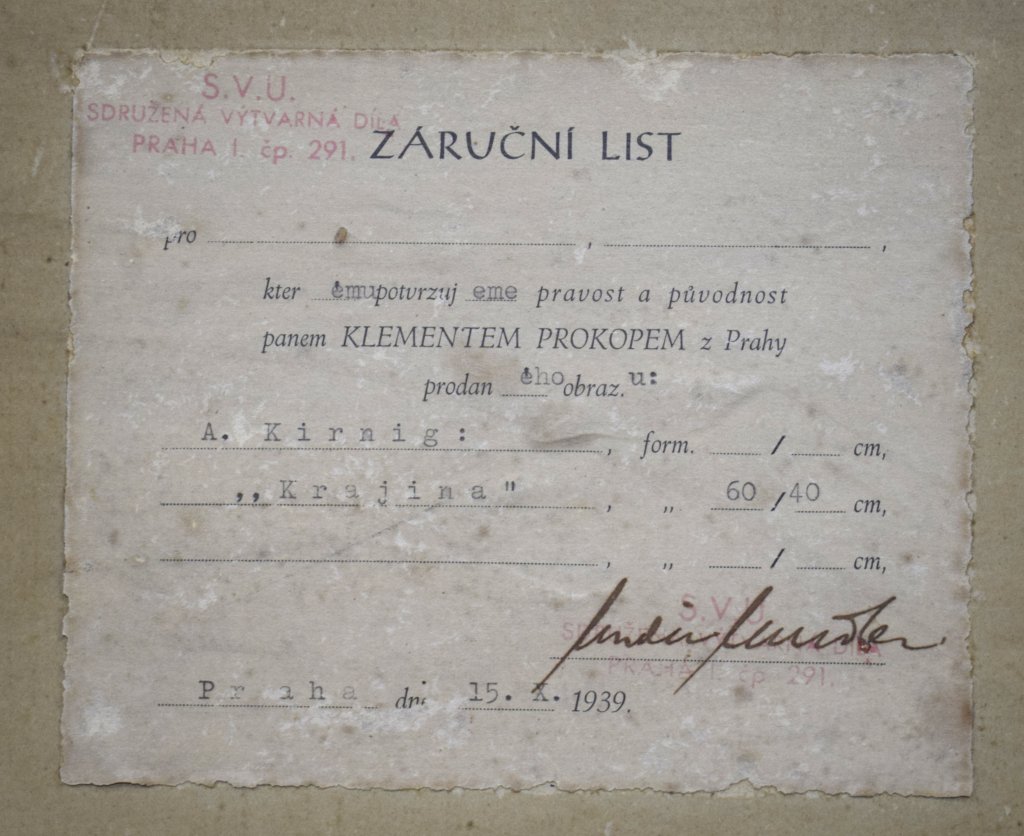 S.V.U.
SDRUŽENÁ VÝTVARNÁ DÍLA
PRAHA I. čp. 291.
ZÁRUČNÍ LIST
pro , ,
kter ému potvrzuj eme pravost a původnost
panem KLEMENTEM PROKOPEM z Prahy
prodan ého obraz.u:
A. Kirnig: , form. / cm,
„Krajina" , „ 60 / 40 cm,
, „ / cm,
S.V.U.
SDRUŽENÁ VÝTVARNÁ DÍLA
PRAHA I. čp 291.
Praha dne 15. X. 1939.